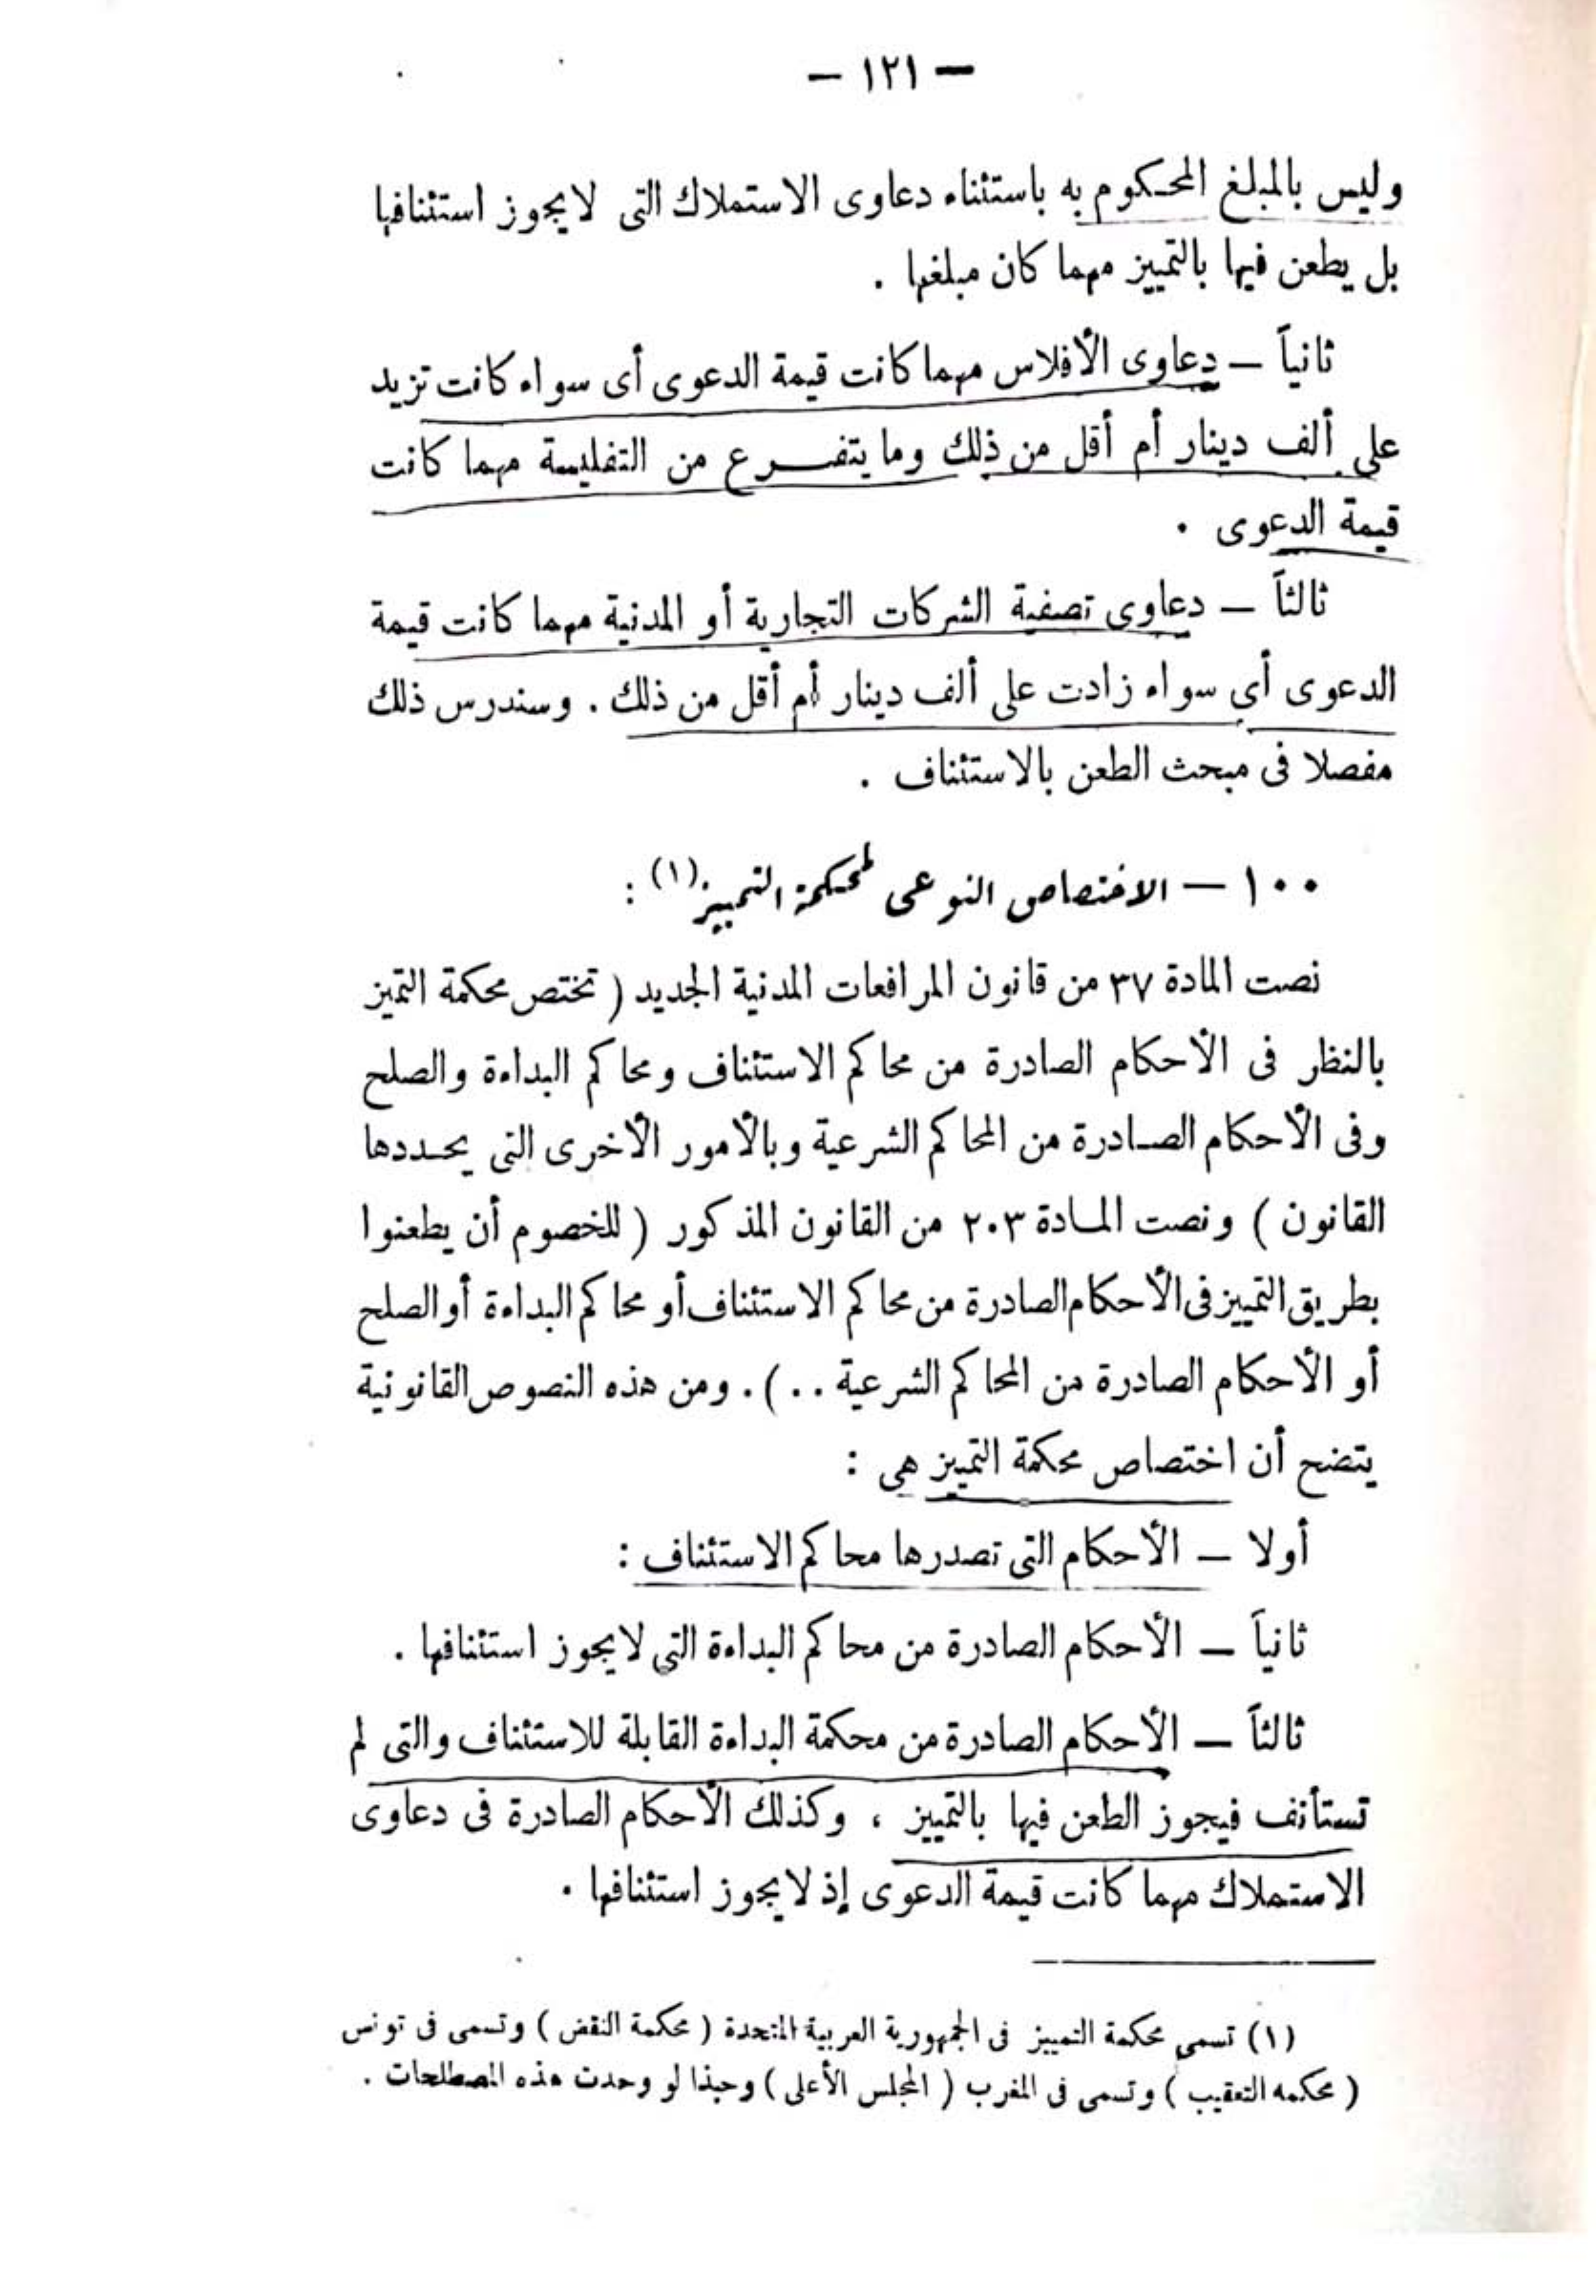 — ١٢١ —
وليس بالمبلغ المحكوم به باستثناء دعاوى الاستملاك التى لا يجوز استئنافها
بل يطعن فيها بالتمييز مهما كان مبلغها .
ثانياً — دعاوى الأفلاس مهما كانت قيمة الدعوى أى سواء كانت تزيد
على ألف دينار أم أقل من ذلك وما يتفرع من التفليسة مهما كانت
قيمة الدعوى .
ثالثاً — دعاوى تصفية الشركات التجارية أو المدنية مهما كانت قيمة
الدعوى أى سواء زادت على ألف دينار أم أقل من ذلك . وسندرس ذلك
مفصلا فى مبحث الطعن بالاستئناف .
١٠٠ — الاختصاص النوعى لمحكمة التمييز (١) :
نصت المادة ٣٧ من قانون المرافعات المدنية الجديد ( تختص محكمة التميز
بالنظر فى الأحكام الصادرة من محاكم الاستئناف ومحاكم البداءة والصلح
وفى الأحكام الصادرة من المحاكم الشرعية وبالأمور الأخرى التى يحددها
القانون ) ونصت المادة ٢٠٣ من القانون المذكور ( للخصوم أن يطعنوا
بطريق التمييز فى الأحكام الصادرة من محاكم الاستئناف أو محاكم البداءة أو الصلح
أو الأحكام الصادرة من المحاكم الشرعية . . ) . ومن هذه النصوص القانونية
يتضح أن اختصاص محكمة التمييز هى :
أولا — الأحكام التى تصدرها محاكم الاستئناف :
ثانياً — الأحكام الصادرة من محاكم البداءة التى لا يجوز استئنافها .
ثالثاً — الأحكام الصادرة من محكمة البداءة القابلة للاستئناف والتى لم
تستأنف فيجوز الطعن فيها بالتمييز ، وكذلك الأحكام الصادرة فى دعاوى
الاستملاك مهما كانت قيمة الدعوى إذ لا يجوز استئنافها .
(١) تسمى محكمة التمييز فى الجمهورية العربية المتحدة ( محكمة النقض ) وتسمى فى تونس
( محكمه التعقيب ) وتسمى فى المغرب ( المجلس الأعلى ) وحبذا لو وحدت هذه المصطلحات .